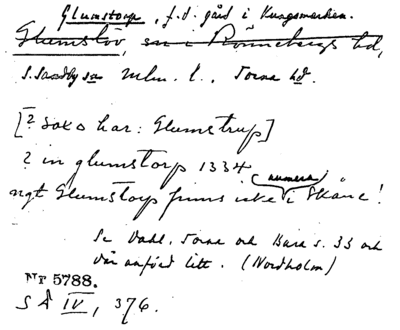 Glumstorp, f.d. gård i Kungsmarken.
Glumslöv, sn i Rönnebergs hd,
S. Sandby sn Mlm. l., Torna hd.
[? Saxo har: Glumstrup]
? in glumstorp 1334
numera
ngt Glumstorp finns icke i Skåne!
Se Dahl, Torna och Bara s. 33 och
där anförd litt. (Nordholm)
Nr 5788.
SÅ IV, 376.